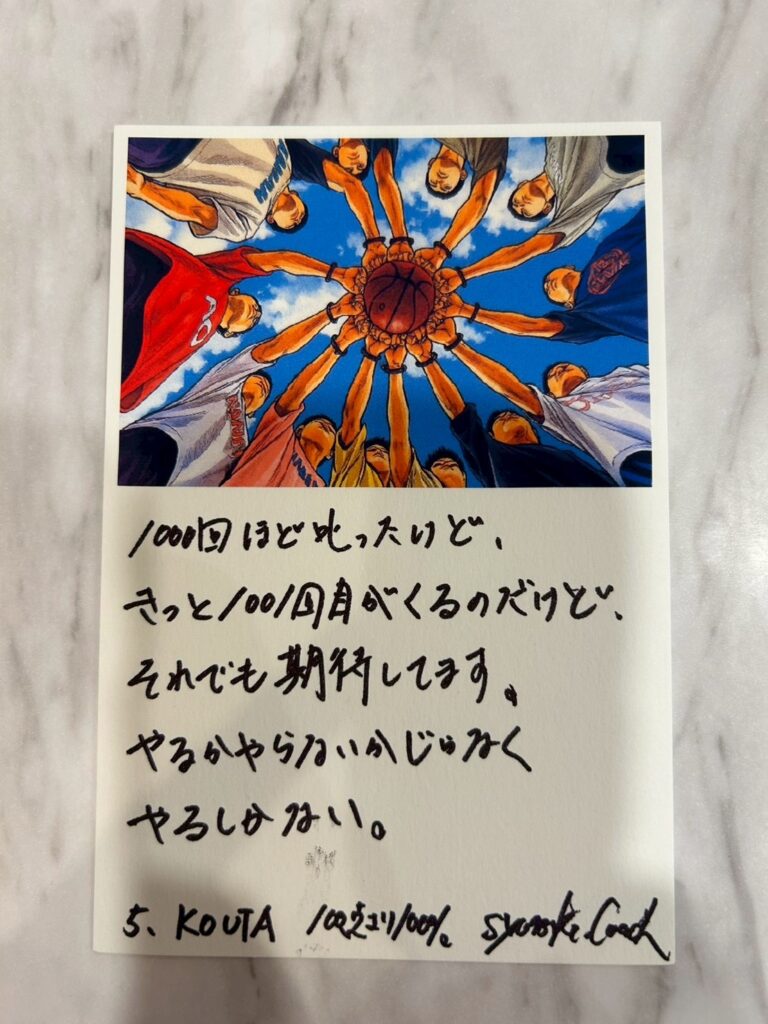 1000回ほど叱ったけど、
きっと1001回目がくるのだけど、
それでも期待してます。
やるかやらないかじゃなく
やるしかない。
5、KOUTA 100点より100%。 Coach